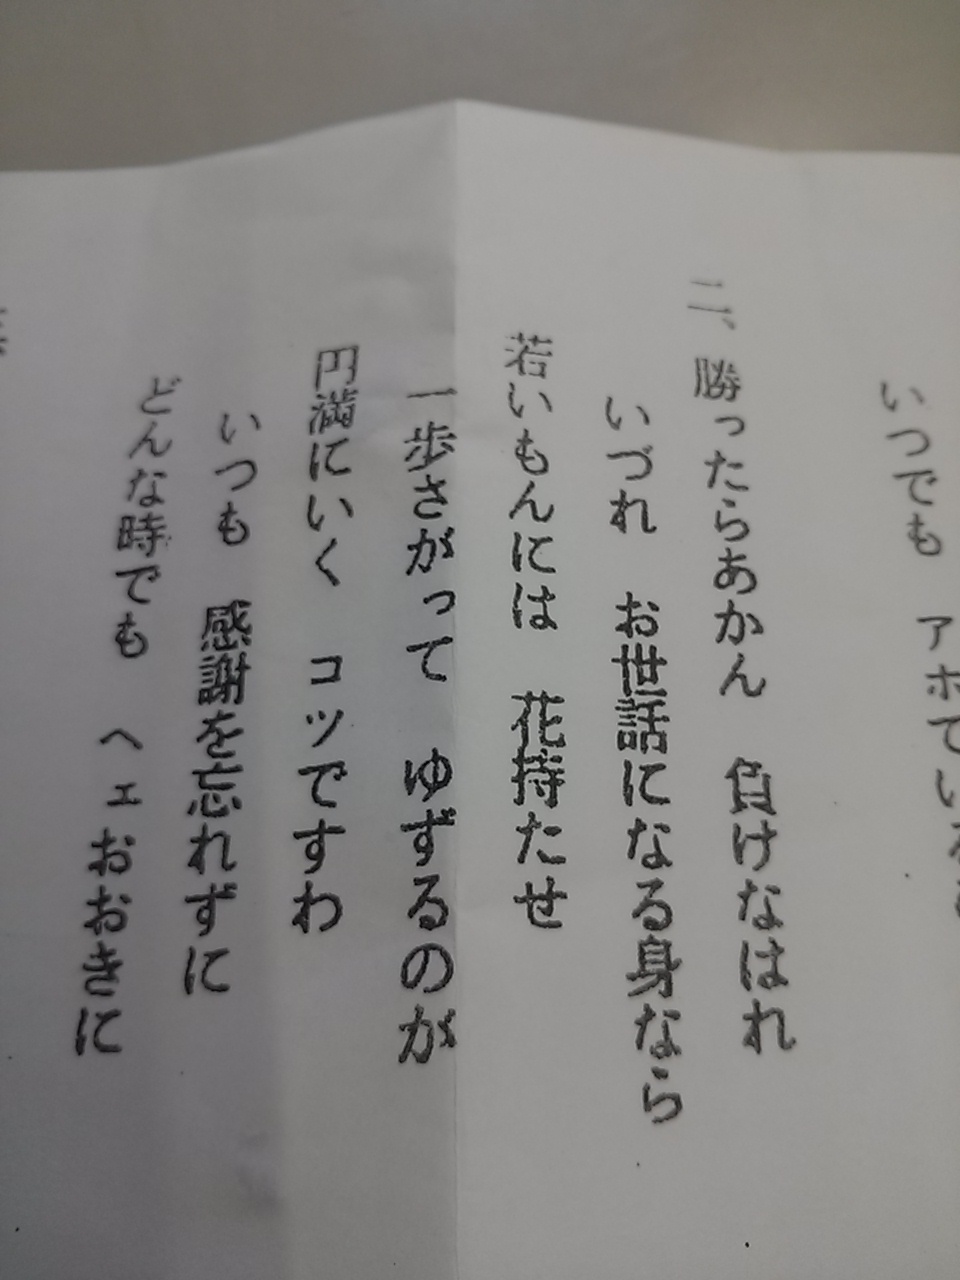 いつでも　アホでい
二、勝ったらあかん　負けなはれ
いづれ　お世話になる身なら
若いもんには　花持たせ
一歩さがって　ゆずるのが
円満にいく　コツですわ
いつも　感謝を忘れずに
どんな時でも　ヘェおおきに